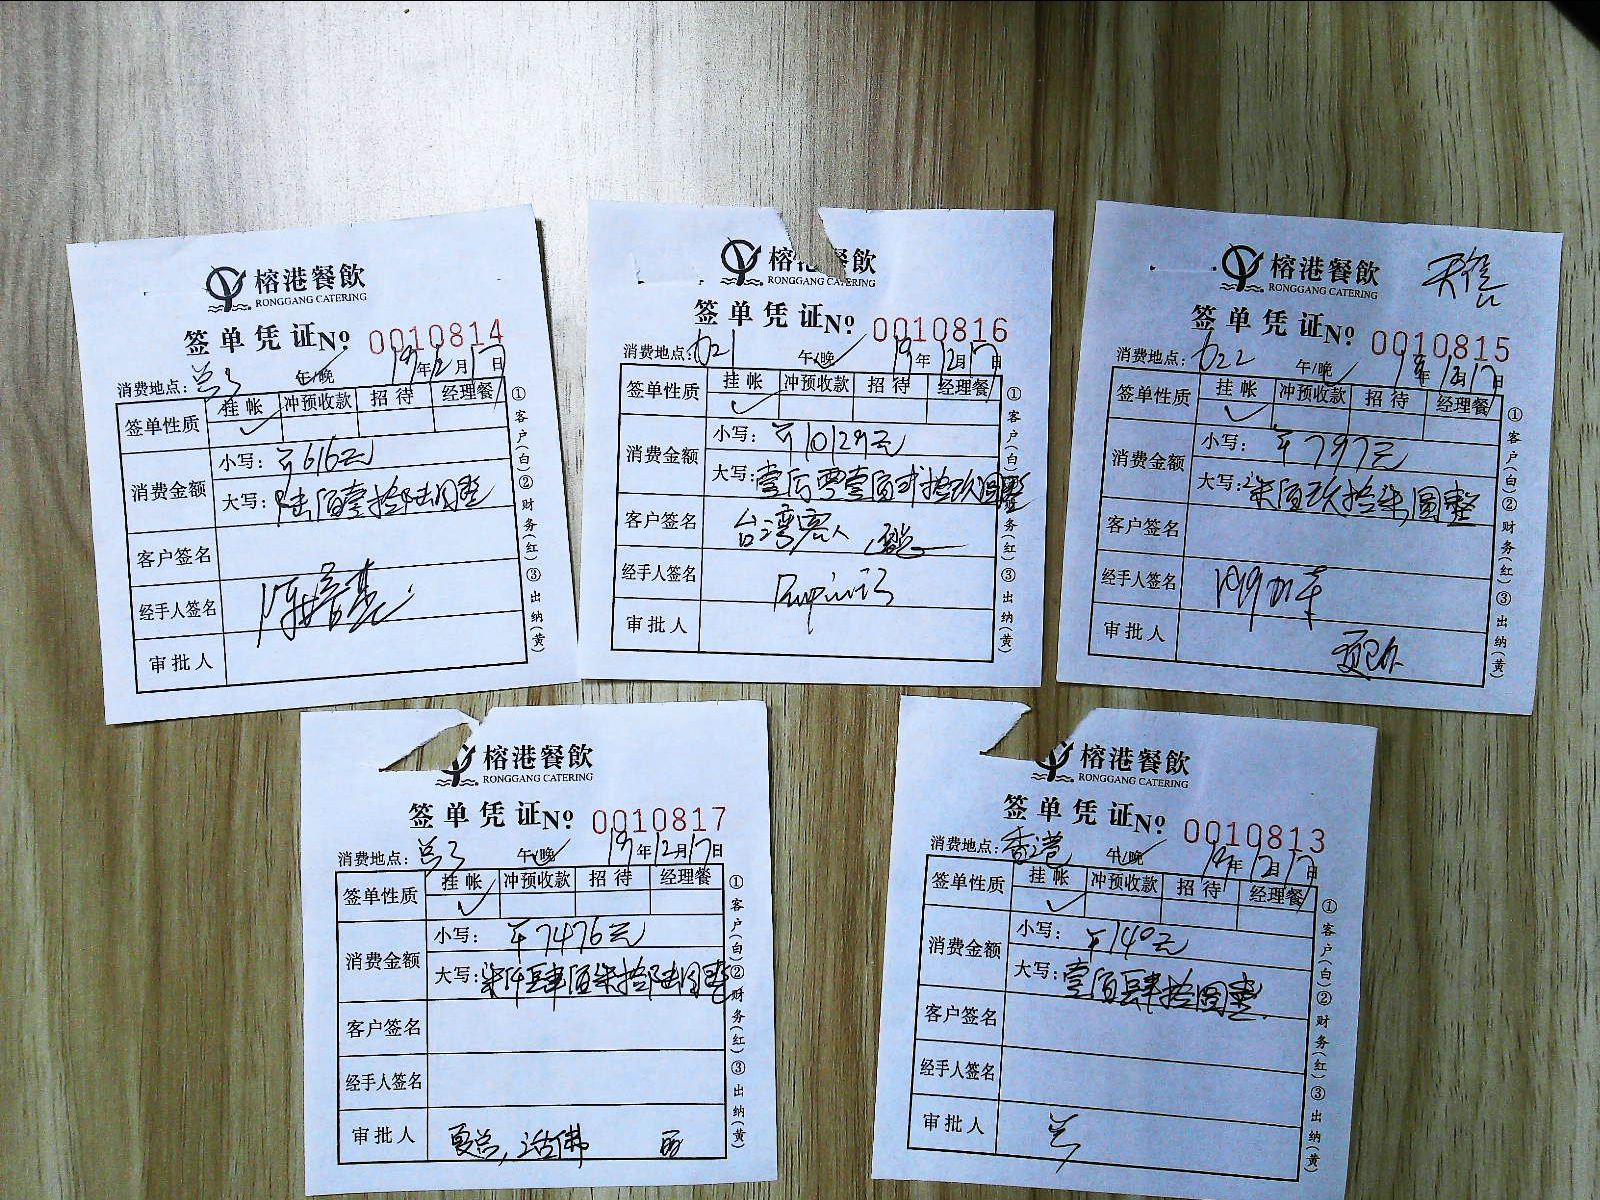 榕港餐飲
RONGGANG CATERING
签单凭证 № 0010814
消费地点：总3 午/晚 19年12月17日
签单性质 挂帐 冲预收款 招待 经理餐
✓
消费金额 小写：￥616元
大写：陆佰壹拾陆圆整
客户签名
经手人签名
审批人
①客户(白)②财务(红)③出纳(黄)
榕港餐飲
RONGGANG CATERING
签单凭证 № 0010816
消费地点：021 午/晚 19年12月17日
签单性质 挂帐 冲预收款 招待 经理餐
✓
消费金额 小写：￥10129元
大写：壹万零壹佰贰拾玖圆整
客户签名 台湾客人
经手人签名
审批人
①客户(白)②财务(红)③出纳(黄)
榕港餐飲
RONGGANG CATERING
天信
签单凭证 № 0010815
消费地点：022 午/晚 19年12月17日
签单性质 挂帐 冲预收款 招待 经理餐
✓
消费金额 小写：￥797元
大写：柒佰玖拾柒圆整
客户签名
经手人签名
审批人
①客户(白)②财务(红)③出纳(黄)
榕港餐飲
RONGGANG CATERING
签单凭证 № 0010817
消费地点：总3 午/晚 19年12月17日
签单性质 挂帐 冲预收款 招待 经理餐
✓
消费金额 小写：￥7476元
大写：柒仟肆佰柒拾陆圆整
客户签名
经手人签名
审批人 夏总，活佛
①客户(白)②财务(红)③出纳(黄)
榕港餐飲
RONGGANG CATERING
签单凭证 № 0010813
消费地点：香港 午/晚 19年12月17日
签单性质 挂帐 冲预收款 招待 经理餐
✓
消费金额 小写：￥140元
大写：壹佰肆拾圆整
客户签名
经手人签名
审批人
①客户(白)②财务(红)③出纳(黄)